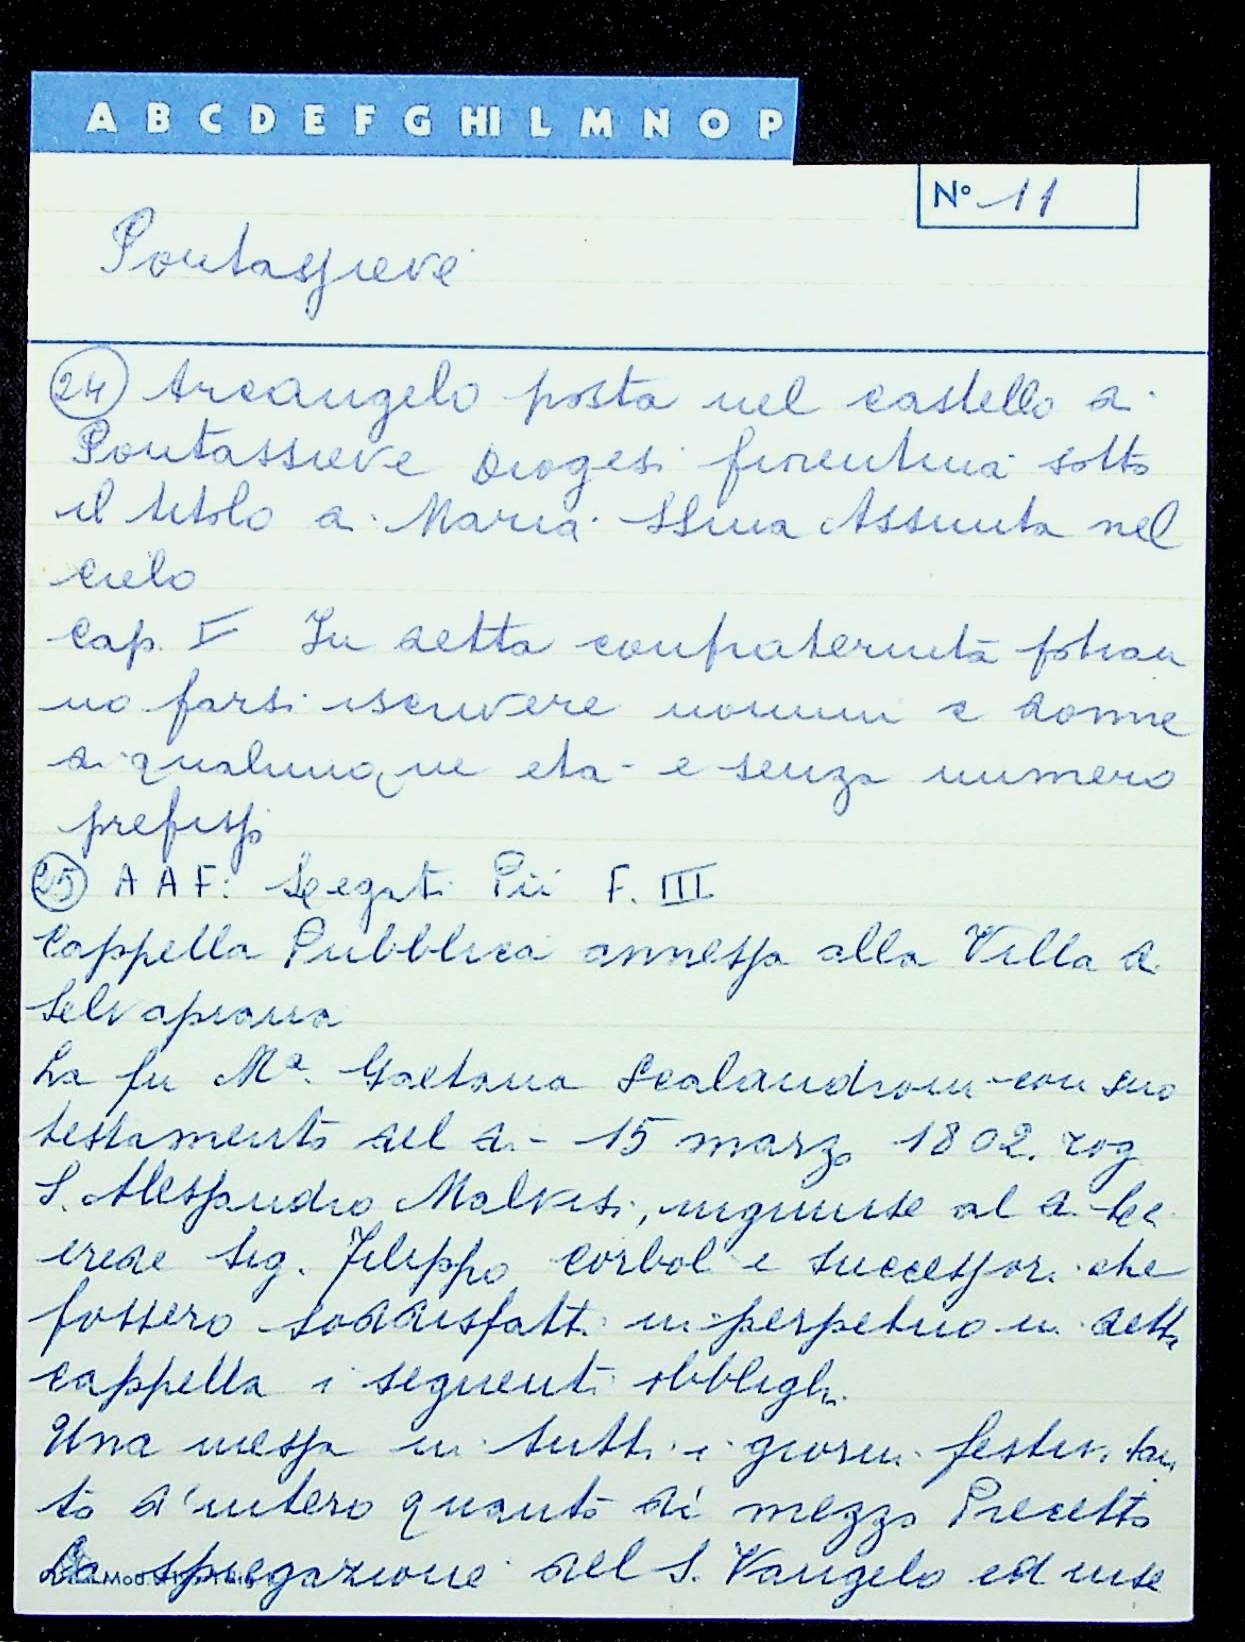 A B C D E F G HI L M N O P
N° 11
Pontassieve
24 Arcangelo posta nel castello di
Pontassieve Diogesi fiorentina sotto
il titolo di Maria SSma Assunta nel
cielo
Cap. V In detta confraternità potran
no farsi iscrivere uomini e donne
di qualunque età e senza numero
prefisso
25 A A F: Legati Pii F. III
Cappella Pubblica annessa alla Villa di
Selvapiana
La fu Ma. Gaetana Scalandroni con suo
testamento del dì 15 marzo 1802. rog
S. Alessandro Malvisi, ingiunse al di lei
erede Sig. Filippo Corboli e successori che
fossero soddisfatti in perpetuo in detta
cappella i seguenti obblighi.
Una messa in tutti i giorni festivi tan
to d'intero quanto di mezzo Precetto
La spiegazione del S. Vangelo ed inse